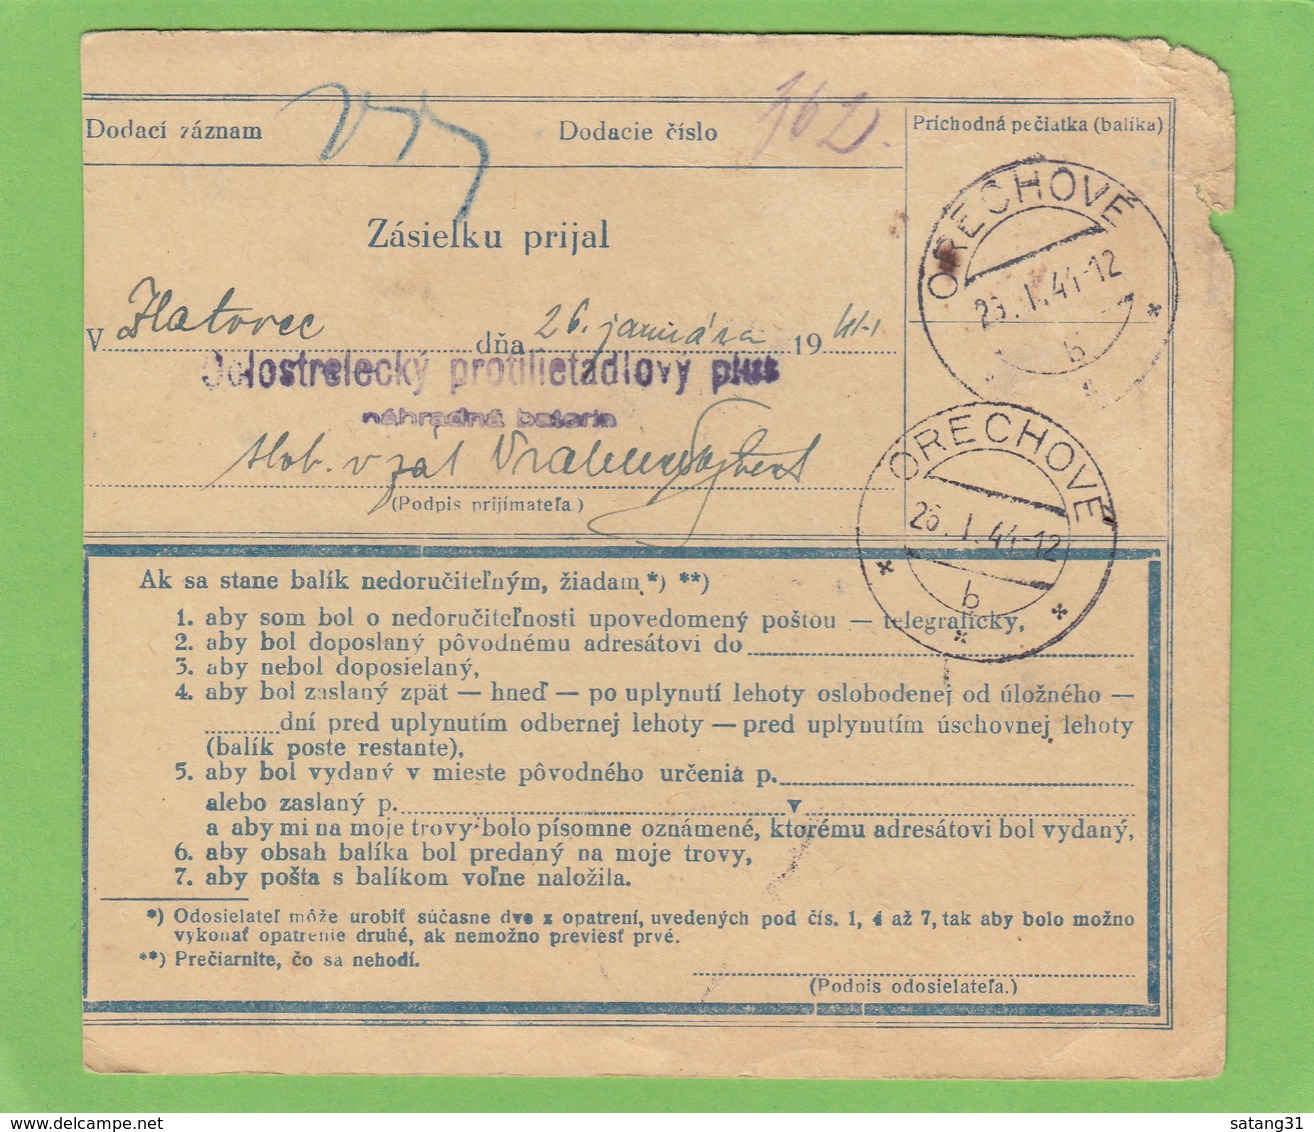 Dodací záznam Dodacie číslo 362. Príchodná pečiatka (balíka)
ORECHOVÉ
26. I. 44-12
b
Zásielku prijal
V Zlatovec dňa 26. januára 1944
Delostrelecký protilietadlový pluk
náhradná bateria
slob. v zál
(Podpis prijímateľa.)
ORECHOVÉ
26. I. 44-12
b
Ak sa stane balík nedoručiteľným, žiadam *) **)
1. aby som bol o nedoručiteľnosti upovedomený poštou — telegraficky,
2. aby bol doposlaný pôvodnému adresátovi do
3. aby nebol doposielaný,
4. aby bol zaslaný zpät — hneď — po uplynutí lehoty oslobodenej od úložného —
dní pred uplynutím odbernej lehoty — pred uplynutím úschovnej lehoty
(balík poste restante),
5. aby bol vydaný v mieste pôvodného určenia p.
alebo zaslaný p. v
a aby mi na moje trovy bolo písomne oznámené, ktorému adresátovi bol vydaný,
6. aby obsah balíka bol predaný na moje trovy,
7. aby pošta s balíkom voľne naložila.
*) Odosielateľ môže urobiť súčasne dve z opatrení, uvedených pod čís. 1, 4 až 7, tak aby bolo možno
vykonať opatrenie druhé, ak nemožno previesť prvé.
**) Prečiarnite, čo sa nehodí.
(Podpis odosielateľa.)
satang31